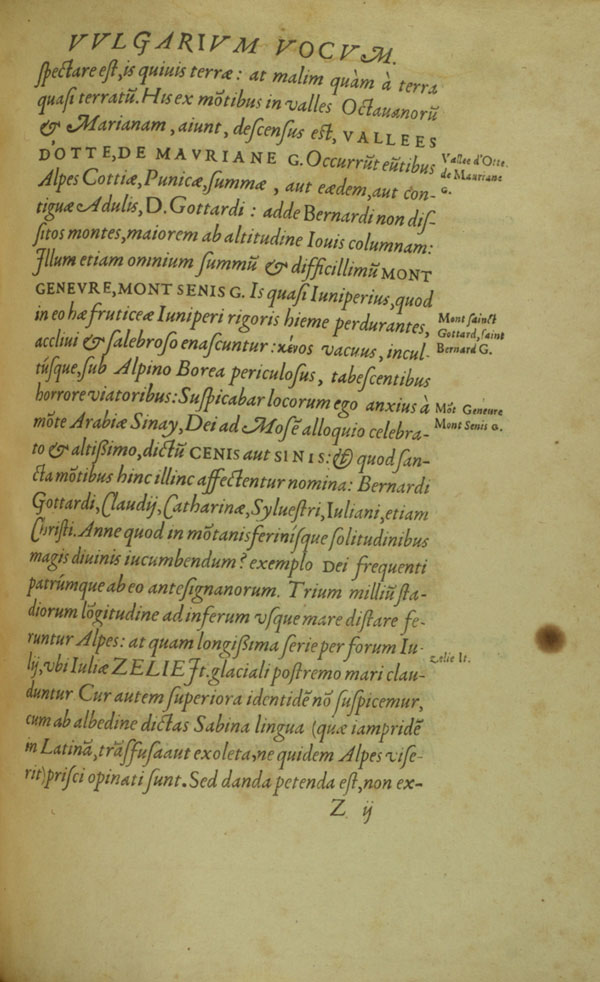 VVLGARIVM VOCVM.
ſpectare eſt, is quiuis terræ: at malim quàm à terra
quaſi terratũ. His ex mõtibus in valles Octauanorũ
& Marianam, aiunt, deſcenſus eſt, VALLEES
D'OTTE, DE MAVRIANE G. Occurrũt eũtibus
Vallee d'Otte.
de Mauriane
G.
Alpes Cottiæ, Punicæ, ſummæ, aut eædem, aut con-
tiguæ Adulis, D. Gottardi: adde Bernardi non diſ-
ſitos montes, maiorem ab altitudine Iouis columnam:
Illum etiam omnium ſummũ & difficillimũ MONT
GENEVRE, MONT SENIS G. Is quaſi Iuniperius, quod
in eo hæ fruticeæ Iuniperi rigoris hieme perdurantes,
Mont ſainct
Gottard, ſaint
Bernard G.
accliui & ſalebroſo enaſcuntur: κένος vacuus, incul-
túſque, ſub Alpino Borea periculoſus, tabeſcentibus
horrore viatoribus: Suſpicabar locorum ego anxius à
Mõt Geneure
Mont Senis G.
mõte Arabiæ Sinay, Dei ad Moſẽ alloquio celebra-
to & altißimo, dictũ CENIS aut SINIS: & quod ſan-
cta mõtibus hinc illinc affectentur nomina: Bernardi
Gottardi, Claudij, Catharinæ, Sylueſtri, Iuliani, etiam
Chriſti. Anne quod in mõtanis feriníſque ſolitudinibus
magis diuinis iucumbendum? exemplo DEI frequenti
patrúmque ab eo anteſignanorum. Trium milliũ ſta-
diorum lõgitudine ad inferum vſque mare diſtare fe-
runtur Alpes: at quam longißima ſerie per forum Iu-
lij, vbi Iuliæ ZELIE It. glaciali poſtremo mari clau-
Zelie It.
duntur Cur autem ſuperiora identidẽ nõ ſuſpicemur,
cum ab albedine dictas Sabina lingua (quæ iampridẽ
in Latinã, trãſfuſa aut exoleta, ne quidem Alpes viſe-
rit) priſci opinati ſunt. Sed danda petenda eſt, non ex-
Z ij